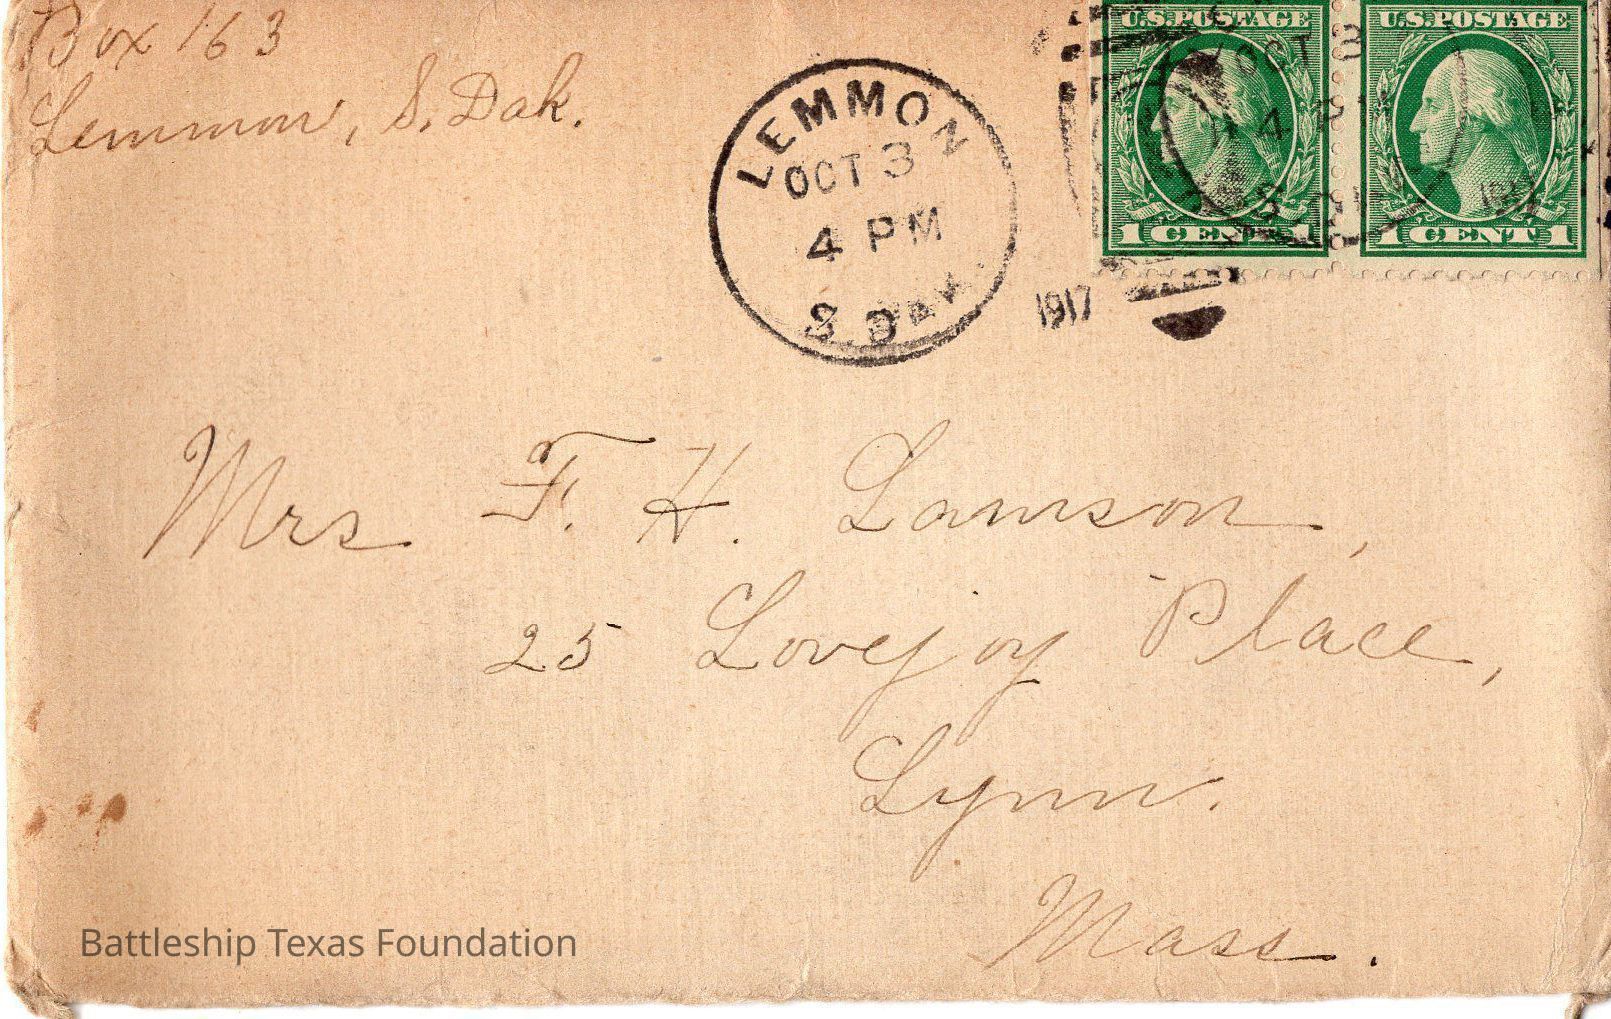 Box 163
Lemmon, S. Dak.
LEMMON
OCT 3
4 PM
S. DAK.
1917
U.S. POSTAGE
1 CENT 1
U.S. POSTAGE
1 CENT 1
OCT 3
4 P
Mrs F. H. Lamson,
25 Lovejoy Place,
Lynn.
Mass.
Battleship Texas Foundation